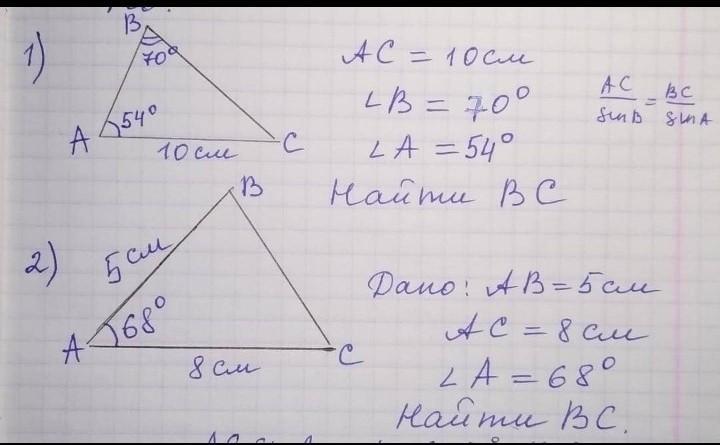 1)
B
70°
54°
A
10 см
C
AC = 10 см
∠B = 70°
∠A = 54°
Найти BC
AC/sinB = BC/sinA
2)
B
5 см
68°
A
8 см
C
Дано: AB = 5 см
AC = 8 см
∠A = 68°
Найти BC.